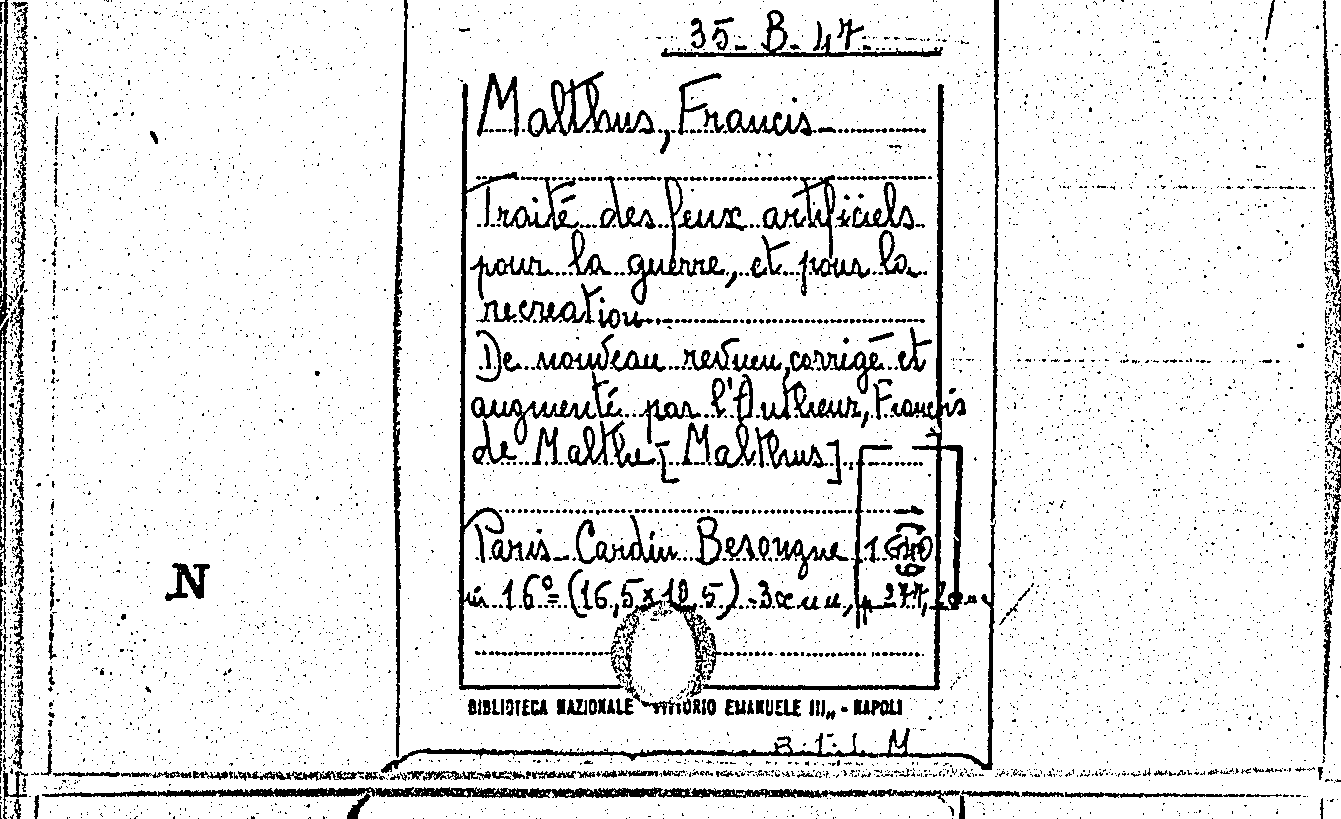 35-B-47.
Malthus, Francis
Traité des feux artificiels
pour la guerre, et pour la
recreation
De nouveau reveu, corrigé et
augmenté par l'Autheur, Francis
de Malthe [Malthus].
Paris Cardin Besongne 1640
in 16º=(16,5x10,5)-3
N
BIBLIOTECA NAZIONALE "VITTORIO EMANUELE III" - NAPOLI